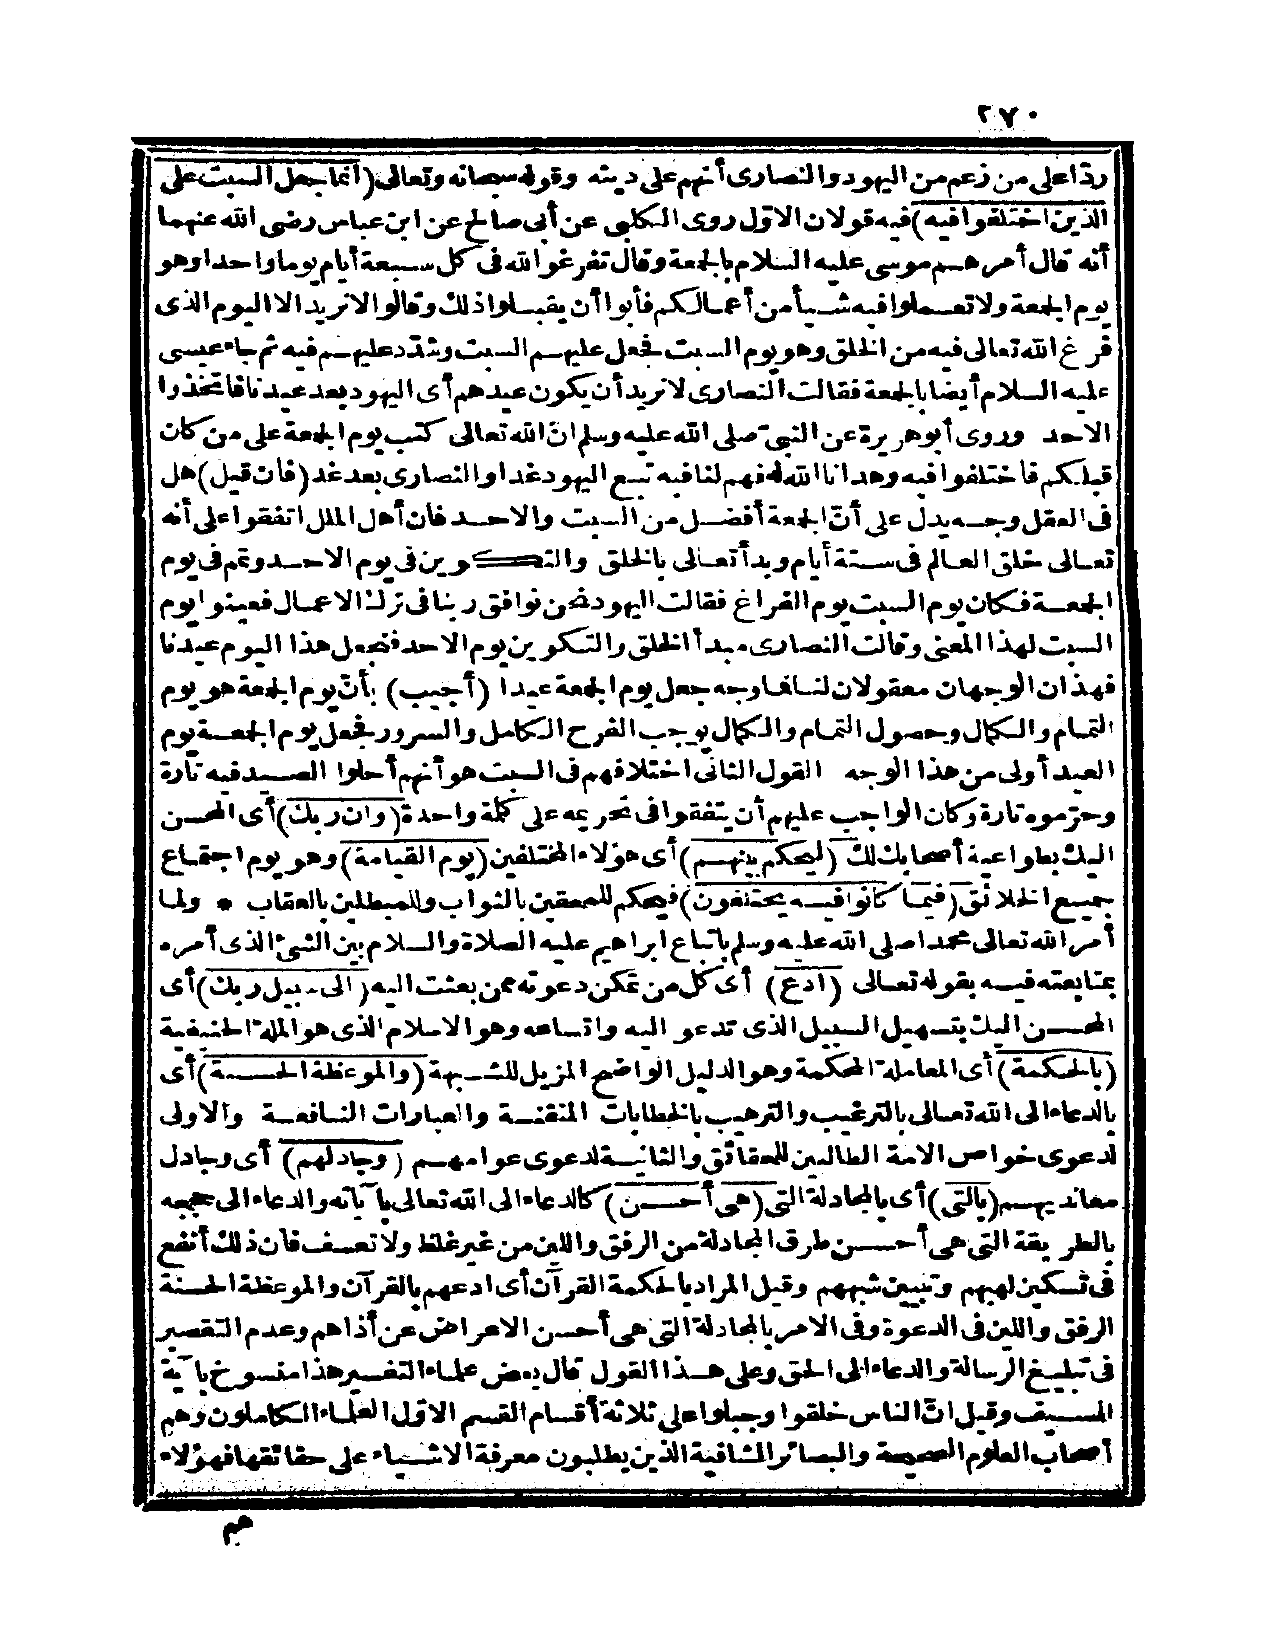 ٢٧٠
ردّا على من زعم من اليهود والنصارى أنهم على دينه وقوله سبحانه وتعالى (انما جعل السبت على
الذين اختلفوا فيه) فيه قولان الاوّل روى الكلبى عن أبى صالح عن ابن عباس رضى الله عنهما
أنه قال أمرهم موسى عليه السلام بالجمعة وقال تفرغوا لله فى كل سبعة أيام يوما واحدا وهو
يوم الجمعة ولا تعملوا فيه شيأ من أعمالكم فأبوا أن يقبلوا ذلك وقالوا لا نريد الا اليوم الذى
فرغ الله تعالى فيه من الخلق وهو يوم السبت فجعل عليهم السبت وشدّد عليهم فيه ثم جاء عيسى
عليه السلام أيضا بالجمعة فقالت النصارى لا نريد أن يكون عيدهم أى اليهود بعد عيدنا فاتخذوا
الاحد وروى أبو هريرة عن النبىّ صلى الله عليه وسلم انّ الله تعالى كتب يوم الجمعة على من كان
قبلكم فاختلفوا فيه وهدانا الله له فهم لنا فيه تبع اليهود غدا والنصارى بعد غد (فان قيل) هل
فى العقل وجه يدل على أنّ الجمعة أفضل من السبت والاحد فان أهل الملل اتفقوا على أنه
تعالى خلق العالم فى ستة أيام وبدأ تعالى بالخلق والتكوين فى يوم الاحد وتم فى يوم
الجمعة فكان يوم السبت يوم الفراغ فقالت اليهود نحن نوافق ربنا فى ترك الاعمال فعينوا يوم
السبت لهذا المعنى وقالت النصارى مبدأ الخلق والتكوين يوم الاحد فنجعل هذا اليوم عيدنا
فهذان الوجهان معقولان لنا فما وجه جعل يوم الجمعة عيدا (أجيب) بأنّ يوم الجمعة هو يوم
التمام والكمال وحصول التمام والكمال يوجب الفرح الكامل والسرور فجعل يوم الجمعة يوم
العيد أولى من هذا الوجه القول الثانى اختلافهم فى السبت هو أنهم أحلوا الصيد فيه تارة
وحرّموه تارة وكان الواجب عليهم أن يتفقوا فى تحريمه على كلمة واحدة (وان ربك) أى المحسن
اليك بطواعية أصحابك لك (ليحكم بينهم) أى هؤلاء المختلفين (يوم القيامة) وهو يوم اجتماع
جميع الخلائق (فيما كانوا فيه يختلفون) فيحكم للمحقين بالثواب وللمبطلين بالعقاب * ولما
أمر الله تعالى محمدا صلى الله عليه وسلم باتباع ابراهيم عليه الصلاة والسلام بين الشئ الذى أمره
بمتابعته فيه بقوله تعالى (ادع) أى كل من تمكن دعوته ممن بعثت اليه (الى سبيل ربك) أى
المحسن اليك بتسهيل السبيل الذى تدعو اليه واتساعه وهو الاسلام الذى هو الملة الحنيفية
(بالحكمة) أى المعاملة المحكمة وهو الدليل الواضح المزيل للشبهة (والموعظة الحسنة) أى
بالدعاء الى الله تعالى بالترغيب والترهيب بالخطابات المتقنة والعبارات النافعة والاولى
لدعوى خواص الامة الطالبين للحقائق والثانية لدعوى عوامهم (وجادلهم) أى وجادل
معانديهم (بالتى) أى بالمجادلة التى (هى أحسن) كالدعاء الى الله تعالى بآياته والدعاء الى حججه
بالطريقة التى هى أحسن طرق المجادلة من الرفق واللين من غير غلظ ولا تعسف فان ذلك أنفع
فى تسكين لهبهم وتبيين شبههم وقيل المراد بالحكمة القرآن أى ادعهم بالقرآن والموعظة الحسنة
الرفق واللين فى الدعوة وفى الامر بالمجادلة التى هى أحسن الاعراض عن أذاهم وعدم التقصير
فى تبليغ الرسالة والدعاء الى الحق وعلى هذا القول قال بعض علماء التفسير هذا منسوخ بآية
السيف وقيل انّ الناس خلقوا وجبلوا على ثلاثة أقسام القسم الاوّل العلماء الكاملون وهم
أصحاب العلوم الصحيحة والبصائر الشافية الذين يطلبون معرفة الاشياء على حقائقها فهؤلاء
هم